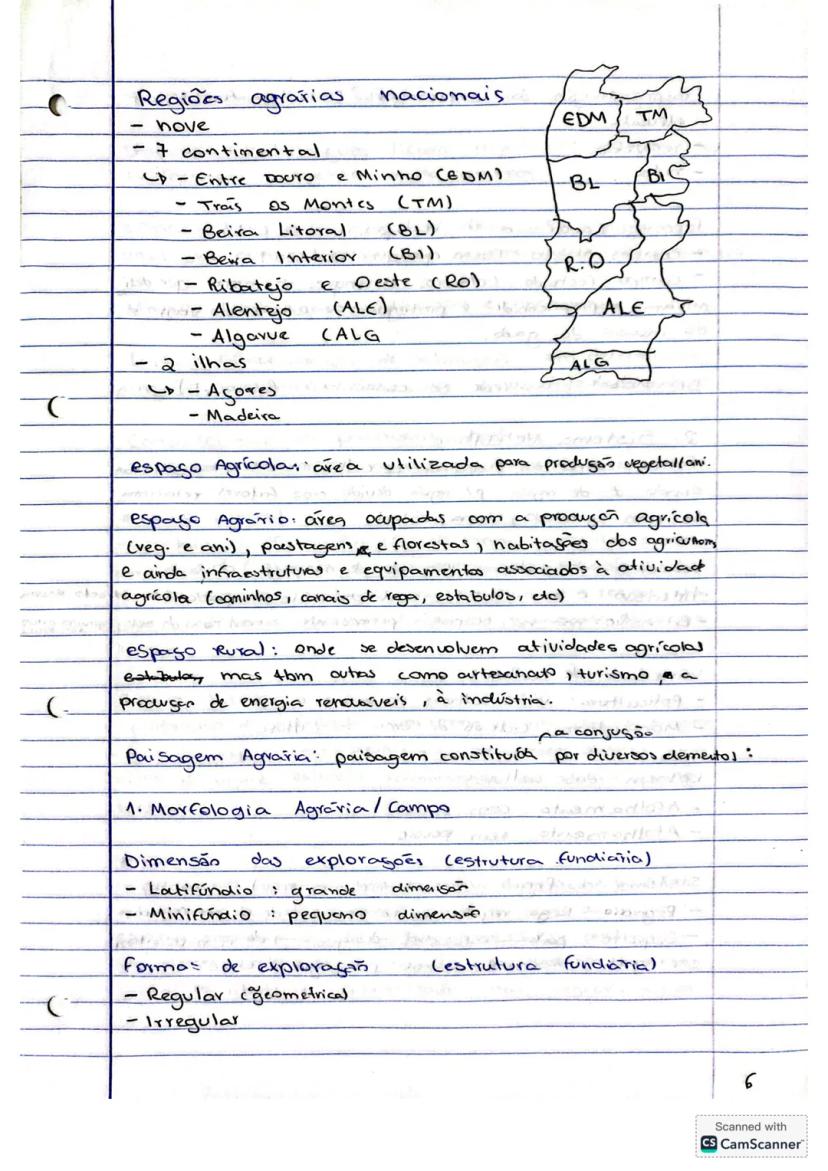 Regiões agrárias nacionais
- nove
- 7 continental
↳ - Entre Douro e Minho (EDM)
- Trás os Montes (TM)
- Beira Litoral (BL)
- Beira Interior (BI)
- Ribatejo e Oeste (RO)
- Alentejo (ALE)
- Algarve (ALG
- 2 ilhas
↳ - Açores
- Madeira
EDM TM
BL BI
R.O
ALE
ALG
espaço Agrícola: área utilizada para produção vegetal/ani.
espaço Agrário: área ocupadas com a produção agrícola
(veg. e ani), pastagens e florestas, habitações dos agricultores
e ainda infraestruturas e equipamentos associados à atividade
agrícola (caminhos, canais de rega, estabulos, etc)
espaço Rural: onde se desenvolvem atividades agrícolas
mas tbm outras como artesanato, turismo, a
produção de energia renováveis, à indústria.
a conjução
Paisagem Agrária: paisagem constituída por diversos elementos:
1. Morfologia Agrária/Campo
Dimensão das explorações (estrutura fundiária)
- Latifúndio: grande dimensão
- Minifúndio: pequeno dimensão
Formas de exploração (estrutura fundiária)
- Regular (geometrica)
- Irregular
6
Scanned with
CS CamScanner